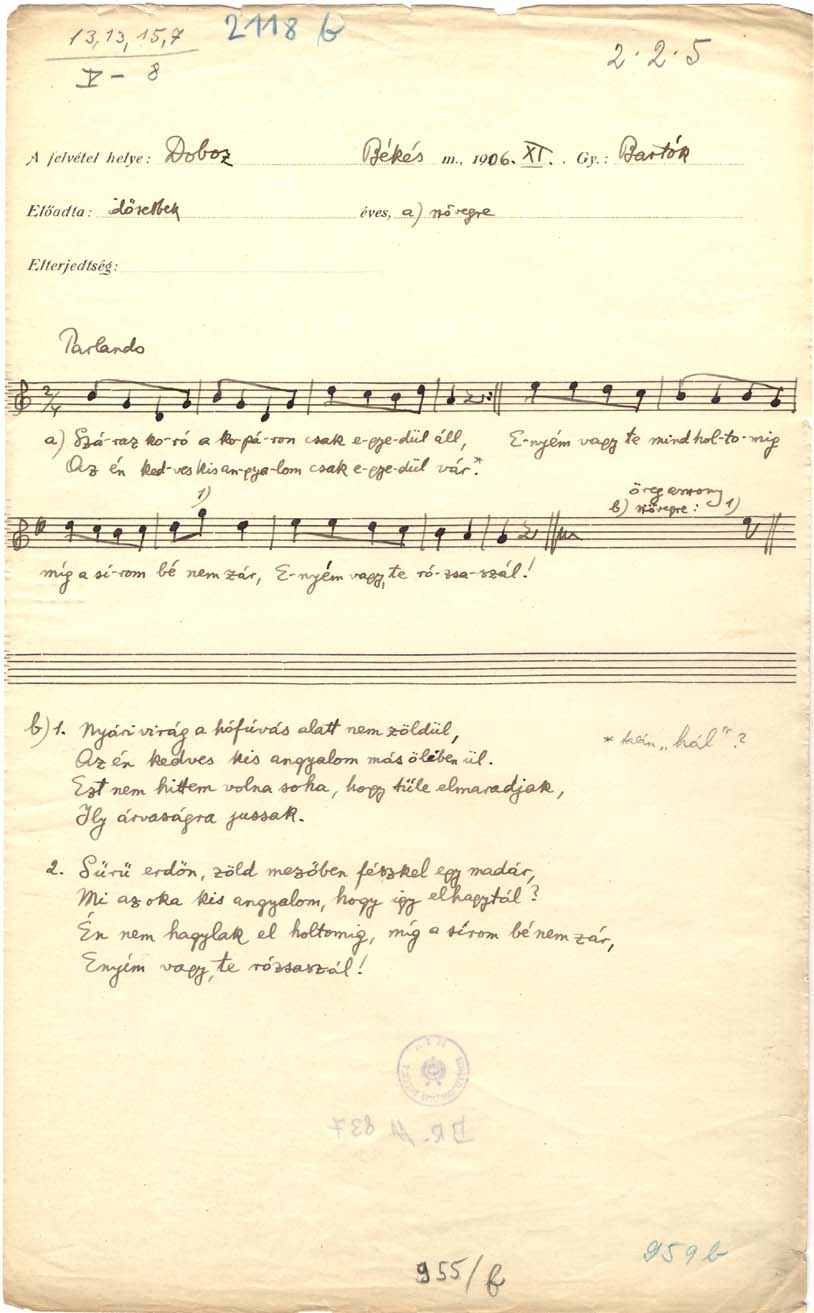 13, 13, 15, 7
V - 8
2118 b
2·2·5
A felvétel helye: Doboz Békés m., 1906. XI. . Gy.: Bartók
Előadta: idősebbek éves, a) szövegre
Elterjedtség:
Parlando
a) Szá-raz ko-ró a ko-pá-ron csak e-gye-dül áll, E-nyém vagy te mind hol-to-mig
Az én ked-ves kis an-gya-lom csak e-gye-dül vár.*
1)
öreg asszony
b) szövegre: 1)
míg a sí-rom bé nem zár, E-nyém vagy, te ró-zsa-szál!
b) 1. Nyári virág a hófúvás alatt nem zöldül,
* talán „hál"?
Az én kedves kis angyalom más ölében ül.
Ezt nem hittem volna soha, hogy tűle elmaradjak,
Ily árvaságra jussak.
2. Sürü erdőn, zöld mezőben fészkel egy madár,
Mi az oka kis angyalom, hogy így elhagytál?
Én nem hagylak el holtomig, míg a sírom bé nem zár,
Enyém vagy, te rózsaszál!
955/b
959 b